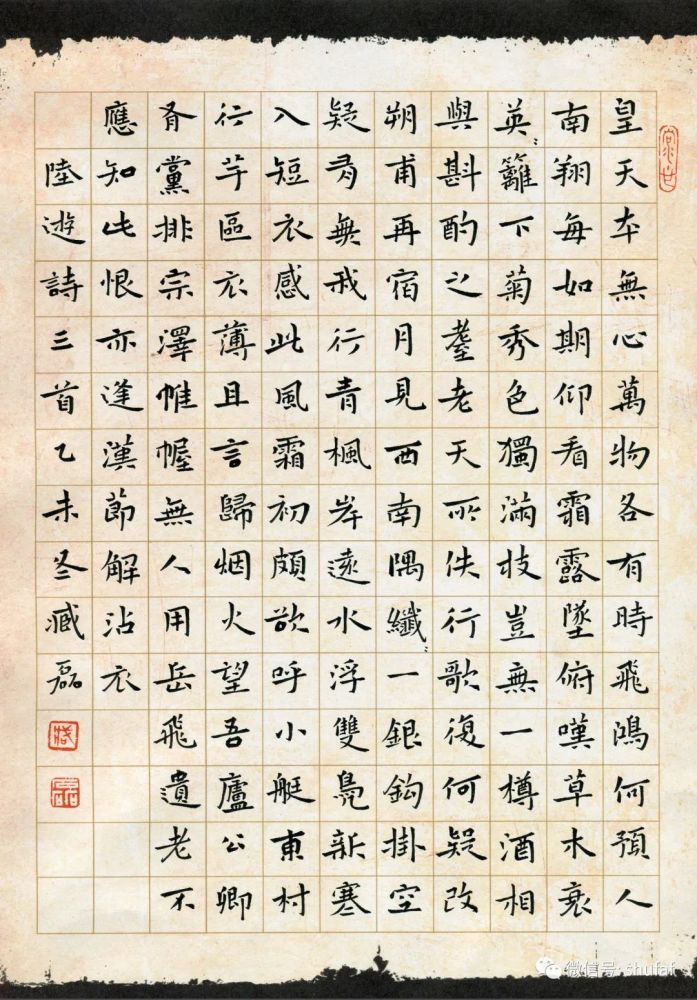 皇天本無心萬物各有時飛鴻何預人
南翔每如期仰看霜露墜俯嘆草木衰
英〻籬下菊秀色獨滿枝豈無一樽酒相
與斟酌之耋老天所佚行歌復何疑改
朔甫再宿月見西南隅纖〻一銀鈎掛空
疑有無我行青楓岸遠水浮雙鳧新寒
入短衣感此風霜初頗欲呼小艇東村
行芋區衣薄且言歸烟火望吾廬公卿
有黨排宗澤帷幄無人用岳飛遺老不
應知此恨亦逢漢節解沾衣
陸遊詩三首乙未冬臧磊
微信号: shufaf